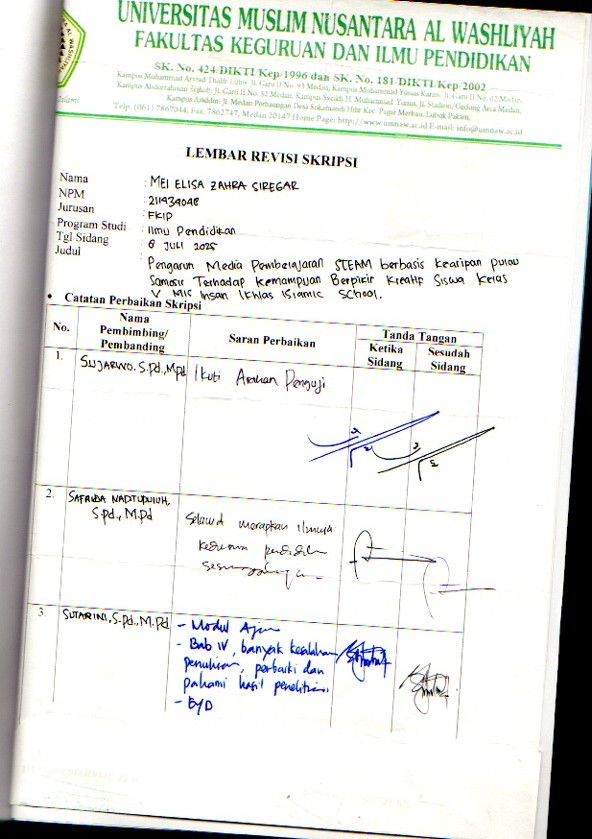 UNIVERSITAS MUSLIM NUSANTARA AL WASHLIYAH
FAKULTAS KEGURUAN DAN ILMU PENDIDIKAN
SK. No. 424/DIKTI/Kep/1996 dan SK. No. 181/DIKTI/Kep/2002
Kampus Muhammad Arsyad Thalib Lubis: Jl. Garu II No. 93 Medan, Kampus Muhammad Yunus Karim: Jl. Garu II No. 02 Medan,
Kampus Abdurrahman Sjihab: Jl. Garu II No. 52 Medan, Kampus Syeikh H. Muhammad Yunus, Jl. Stadion/Gedung Arca Medan,
Kampus Aziddin: Jl. Medan Perbaungan Desa Sukamandi Hilir Kec. Pagar Merbau, Lubuk Pakam.
Telp. (061) 7867044, Fax. 7862747, Medan 20147 Home Page: http://www.umnaw.ac.id E-mail: info@umnaw.ac.id
LEMBAR REVISI SKRIPSI
Nama : MEI ELISA ZAHRA SIREGAR
NPM : 211434048
Jurusan : FKIP
Program Studi : Ilmu Pendidikan
Tgl Sidang : 8 JULI 2025
Judul : Pengaruh Media Pembelajaran STEAM berbasis kearipan pulau
Samosir Terhadap Kemampuan Berpikir Kreatif Siswa Kelas
V MIS Insan Ikhlas Islamic School.
• Catatan Perbaikan Skripsi
No. Nama Pembimbing/ Pembanding Saran Perbaikan Tanda Tangan
Ketika Sidang Sesudah Sidang
1. SUJARWO. S.Pd., Mpd Ikuti Arahan Penguji
2. SAFRIDA NAPITUPULUH, S.pd., M.Pd
3. SUTARINI, S.Pd., M.Pd - Modul Ajar
- Bab IV, banyak kesalahan
penulisan, perbaiki dan
pahami hasil penelitian.
- EYD